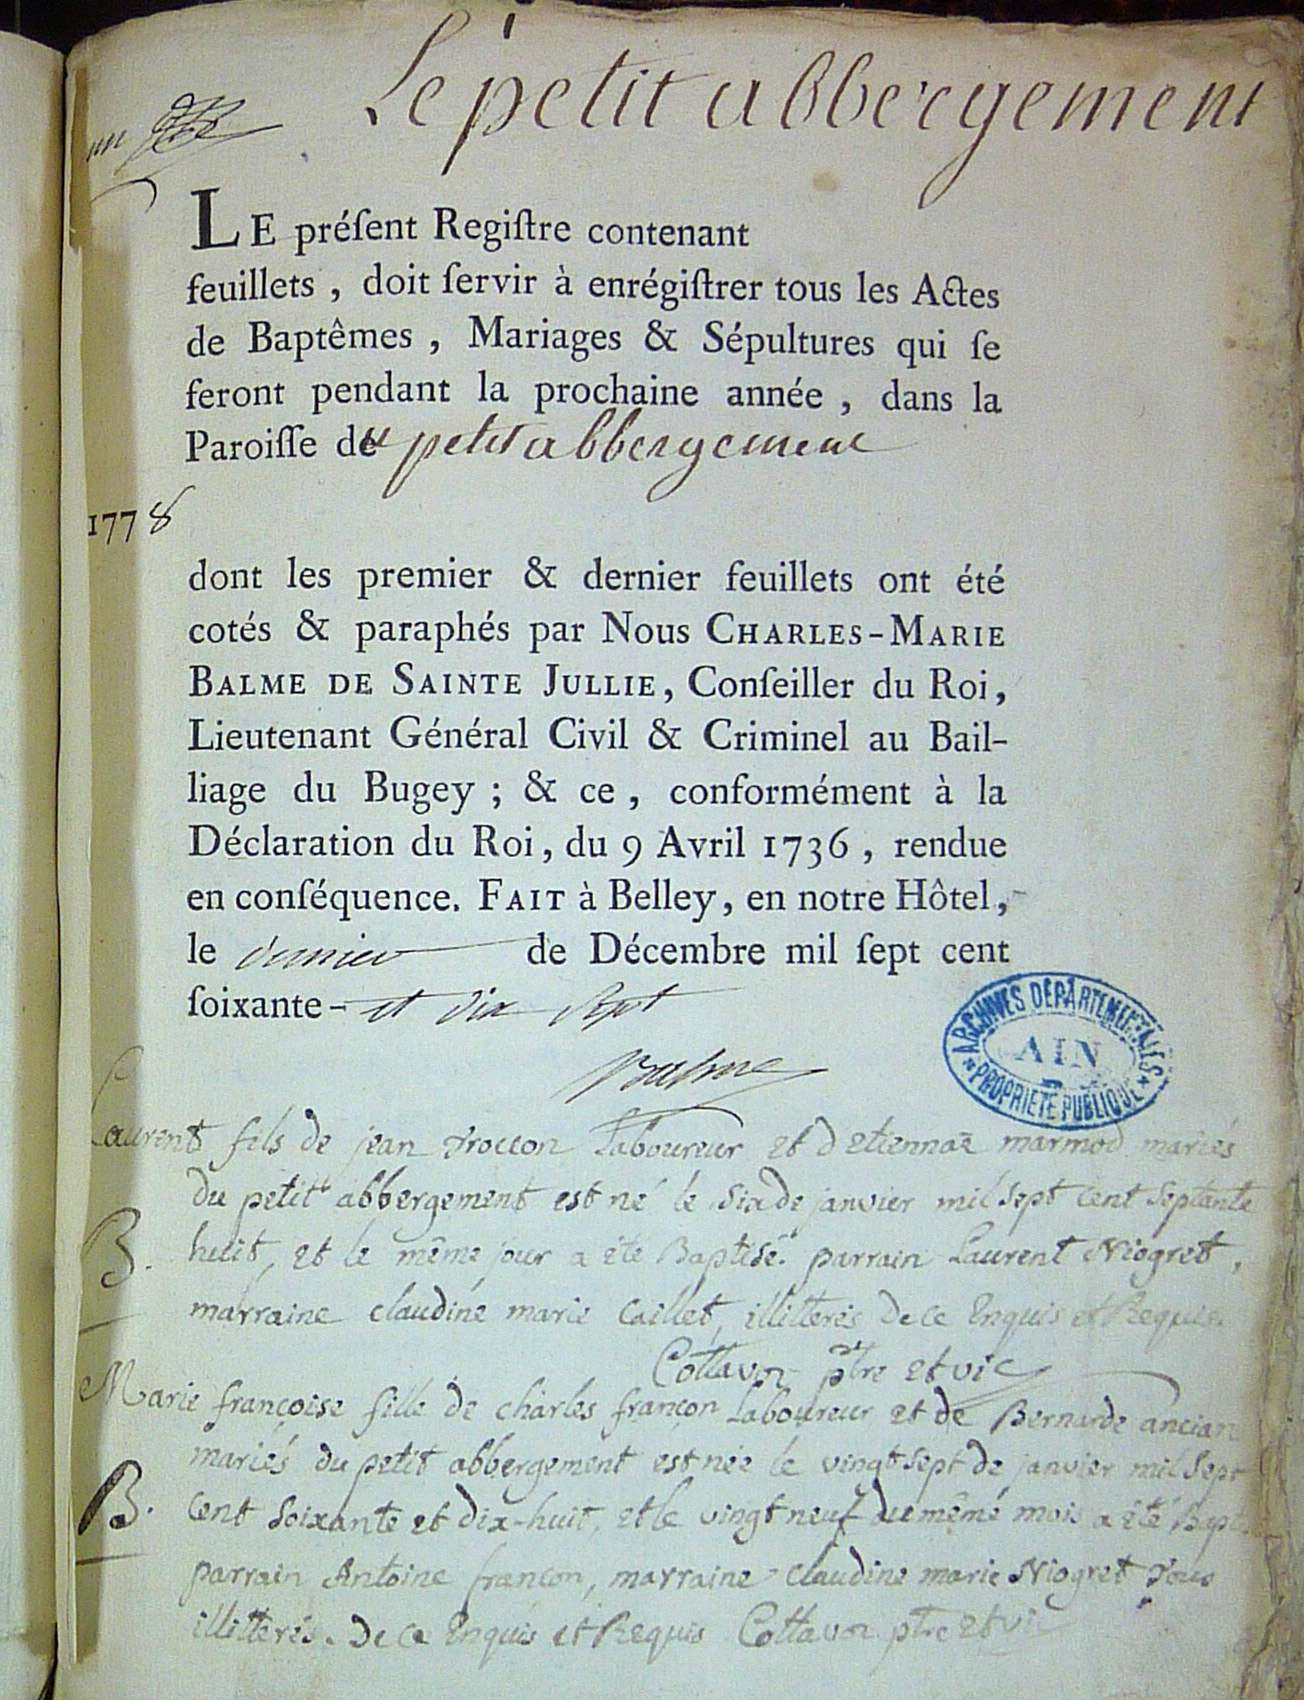 Le petit abbergement
un
LE préſent Regiſtre contenant
feuillets , doit ſervir à enrégiſtrer tous les Actes
de Baptêmes , Mariages & Sépultures qui ſe
feront pendant la prochaine année , dans la
Paroiſſe du petit abbergement
1778
dont les premier & dernier feuillets ont été
cotés & paraphés par Nous CHARLES-MARIE
BALME DE SAINTE JULLIE, Conſeiller du Roi,
Lieutenant Général Civil & Criminel au Bail-
liage du Bugey ; & ce , conformément à la
Déclaration du Roi, du 9 Avril 1736 , rendue
en conſéquence. FAIT à Belley, en notre Hôtel,
le dernier de Décembre mil ſept cent
ſoixante- et dix sept
Balme
ARCHIVES DÉPARTEMENTALES
AIN
* PROPRIÉTÉ PUBLIQUE *
Laurent fils de jean troccon Laboureur et d'etiennaz marmod mariés
du petit abbergement est né le six de janvier mil sept cent septante
B. huit, et le même jour a été Baptisé. parrain Laurent Niogret,
marraine claudine marie Caillet, illitterés de ce Enquis et Requis.
Cottavoz ptre et vic
Marie françoise fille de charles françon Laboureur et de Bernarde ancian
mariés du petit abbergement est née le vingt sept de janvier mil sept
B. Cent soixante et dix-huit, et le vingt neuf du même mois a été Bapt.
parrain Antoine françon, marraine claudine marie Niogret tous
illitterés. de ce Enquis et Requis Cottavoz ptre et vic